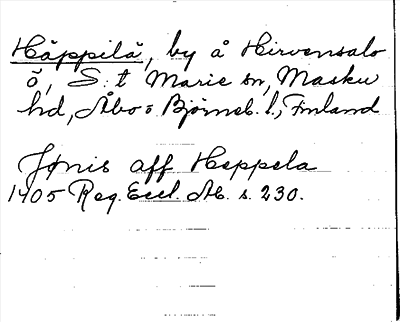 Häppilä, by å Hirvensalo
ö, S:t Marie sn, Masku
hd, Åbo o Björneb. l., Finland
Jønis aff Heppela
1405 Reg. Eccl. Ab. s. 230.